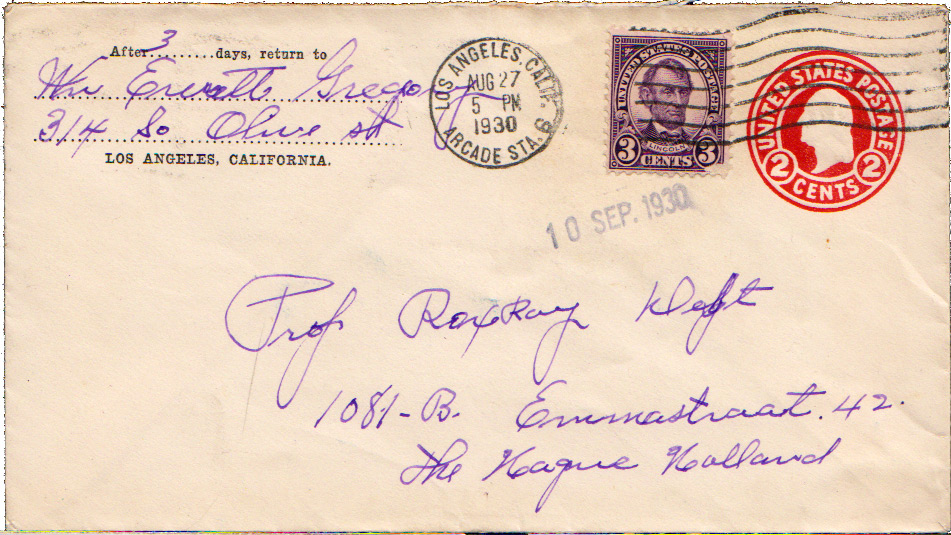 After 3 days, return to
Wm Everett Gregory
314 So Olive St
LOS ANGELES, CALIFORNIA.
LOS ANGELES, CALIF.
AUG 27
5 PM
1930
ARCADE STA. 6
UNITED STATES POSTAGE
LINCOLN
3 CENTS 3
UNITED STATES POSTAGE
2 CENTS 2
10 SEP. 1930
Prof RoxRoy
1081-B. Emmastraat. 42.
The Hague Holland